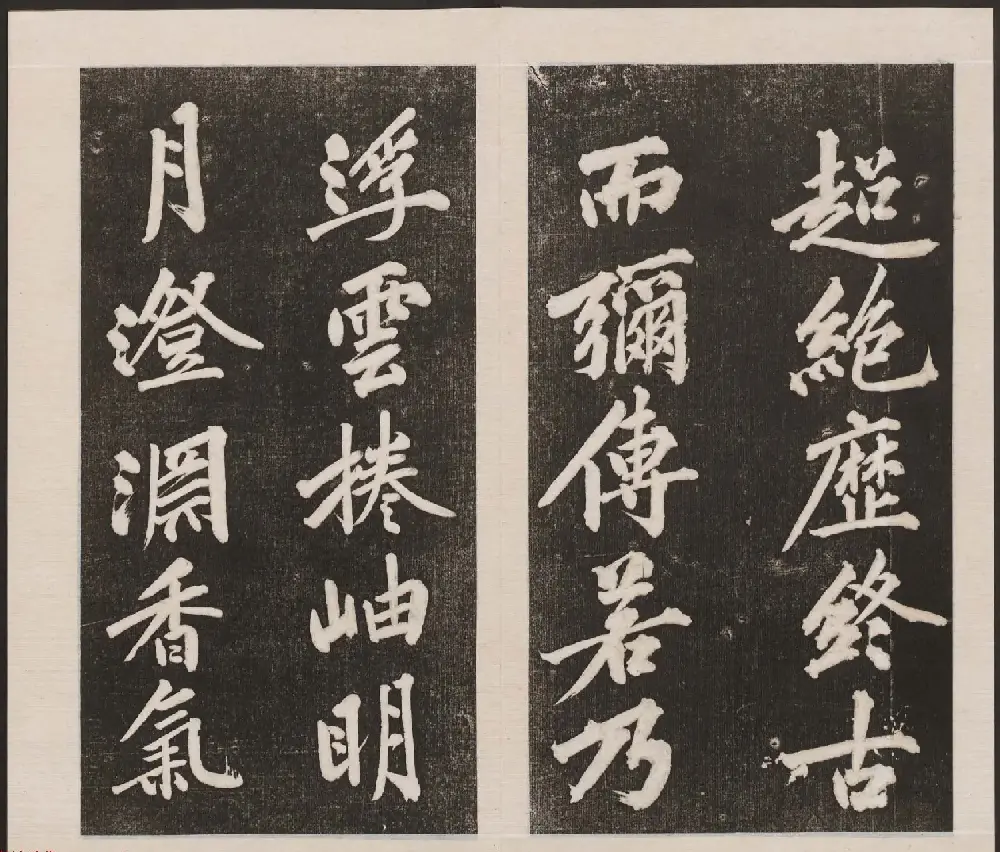 超絶歷終古
而彌傳若乃
浮雲捲岫明
月澄淵香氣